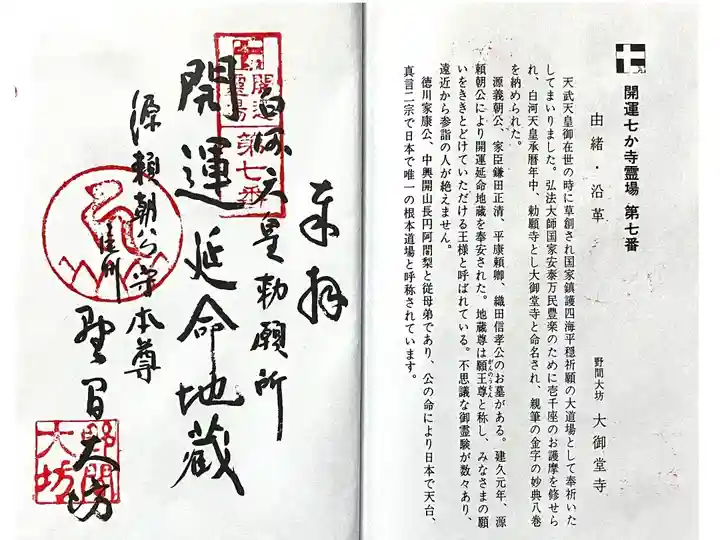 奉拝
白河天皇勅願所
開運延命地蔵
源頼朝公守本尊
野間大坊
開運
霊場
第七番
野間
大坊
開運七か寺霊場 第七番
由緒・沿革
野間大坊 大御堂寺
天武天皇御在世の時に草創され国家鎮護四海平穏祈願の大道場として奉祈いた
してまいりました。弘法大師国家安泰万民豊楽のために壱千座のお護摩を修せら
れ、白河天皇承暦年中、勅願寺とし大御堂寺と命名され、親筆の金字の妙典八巻
を納められた。
源義朝公、家臣鎌田正清、平康頼卿、織田信孝公のお墓がある。建久元年、源
頼朝公により開運延命地蔵を奉安された。地蔵尊は願王尊と称し、みなさまの願
がんのうそん
いをききとどけていただける王様と呼ばれている。不思議な御霊験が数々あり、
遠近から参詣の人が絶えません。
徳川家康公、中興開山長円阿闍梨と従母弟であり、公の命により日本で天台、
真言二宗で日本で唯一の根本道場と呼称されています。